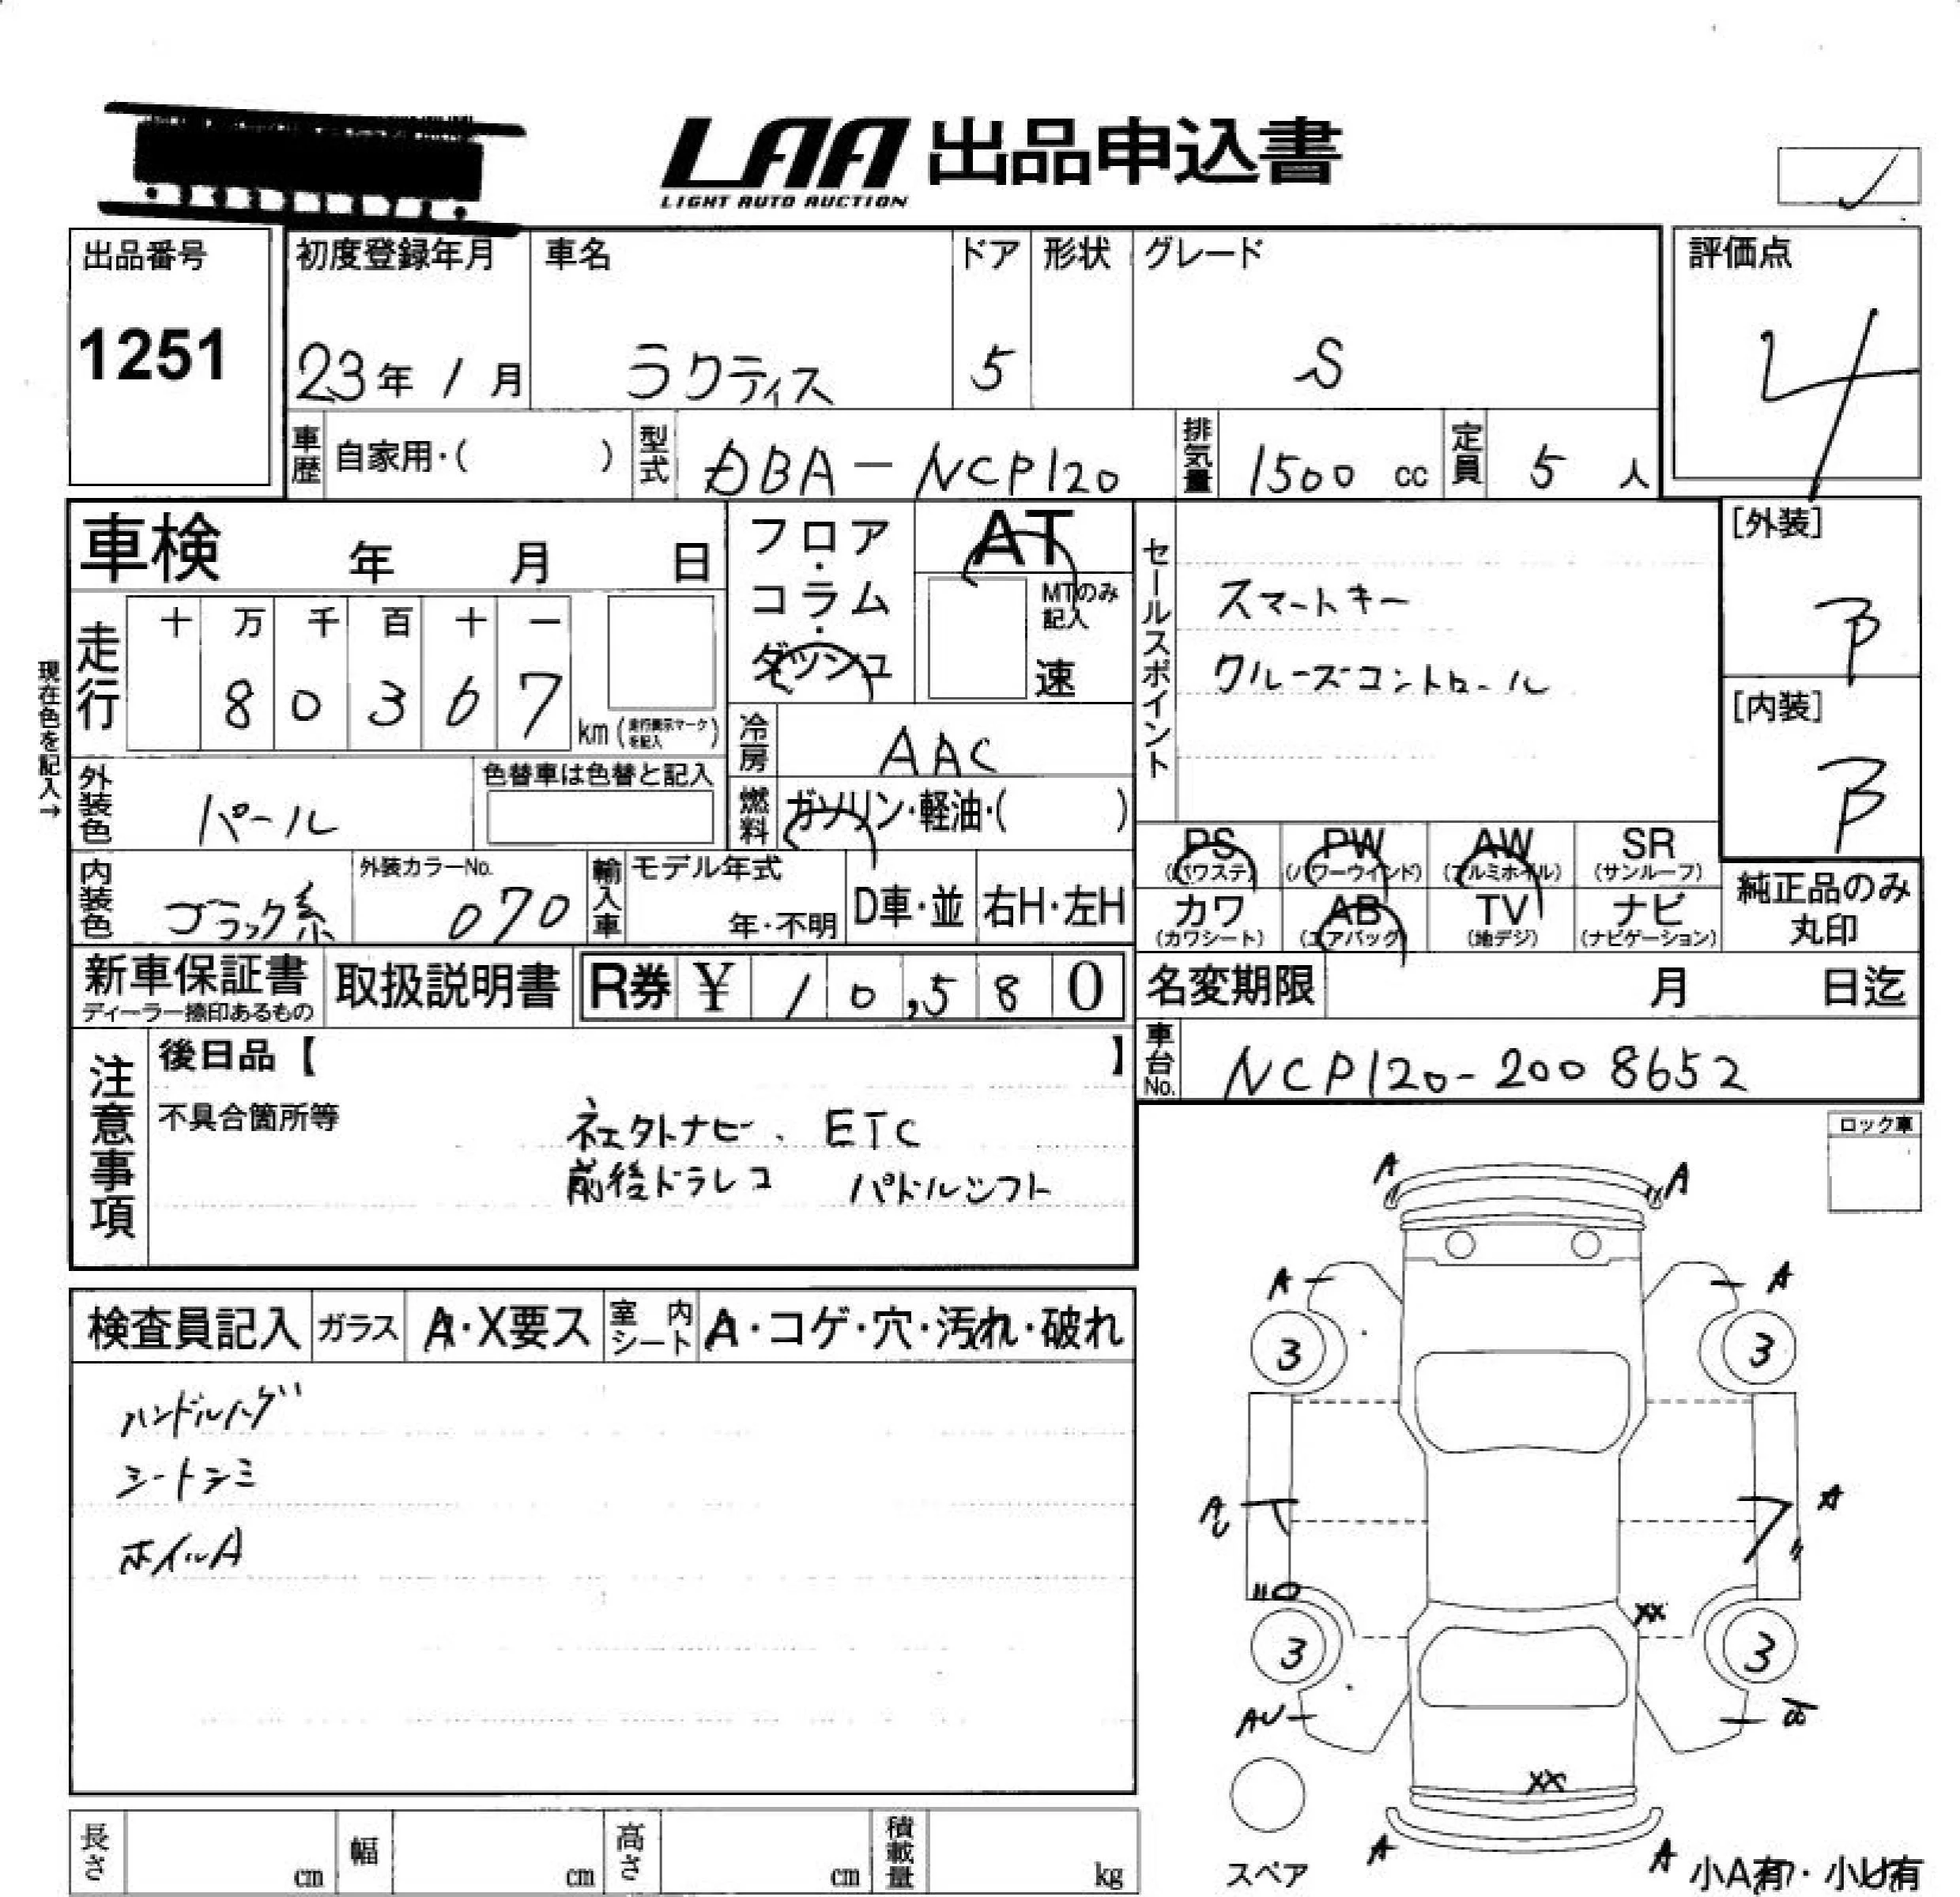 LAA 出品申込書
LIGHT AUTO AUCTION
出品番号 初度登録年月 車名 ドア 形状 グレード 評価点
1251 23年 1月 ラクティス 5 S 4
車歴 自家用・( ) 型式 DBA-NCP120 排気量 1500 cc 定員 5 人
車検 年 月 日
フロア・コラム・ダッシュ
AT
MTのみ記入
速
セールスポイント
スマートキー
クルーズコントロール
[外装]
B
[内装]
B
現在色を記入→
走行 十 万 千 百 十 一
8 0 3 6 7
km (走行表示マークを記入)
冷房 AAC
外装色 パール 色替車は色替と記入
燃料 ガソリン・軽油・( )
PS (パワステ) PW (パワーウインド) AW (アルミホイル) SR (サンルーフ)
カワ (カワシート) AB (エアバック) TV (地デジ) ナビ (ナビゲーション)
純正品のみ丸印
内装色 ブラック系 外装カラーNo. 070 輸入車 モデル年式 年・不明 D車・並 右H・左H
新車保証書 ディーラー捺印あるもの 取扱説明書 R券 ¥ 10,580
名変期限 月 日迄
車台No. NCP120-2008652
注意事項
後日品【 】
不具合箇所等
社外ナビ、ETC
前後ドラレコ パドルシフト
ロック車
検査員記入 ガラス A・X要ス 室内シート A・コゲ・穴・汚れ・破れ
ハンドルハゲ
シートシミ
ホイルA
A A
A A
3 3
A
XX
3 3
AU
XX
A A
スペア
小A有・小U有
長さ cm 幅 cm 高さ cm 積載量 kg